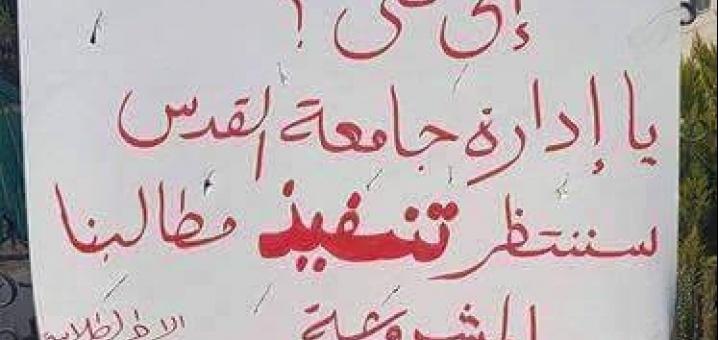 إلى متى ؟
يا إدارة جامعة القدس
سننتظر تنفيذ مطالبنا
المشروعة